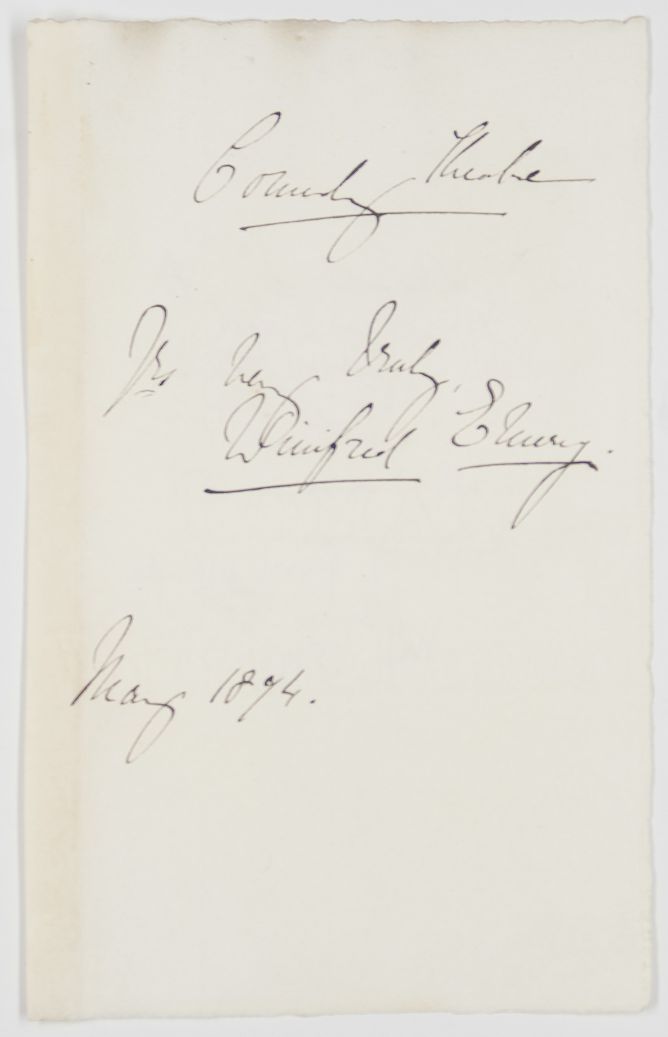 Comedy Theatre
Yrs very truly,
Winifred Emery.
May 1894.